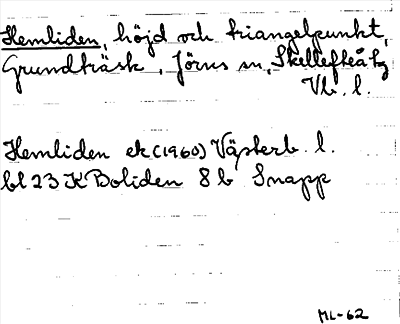 Hemliden, höjd och triangelpunkt,
Grundträsk, Jörns sn, Skellefteå tg
Vb. l.
Hemliden ek (1960) Västerb. l.
bl 23 K Boliden 8 b Snapp
ML-62